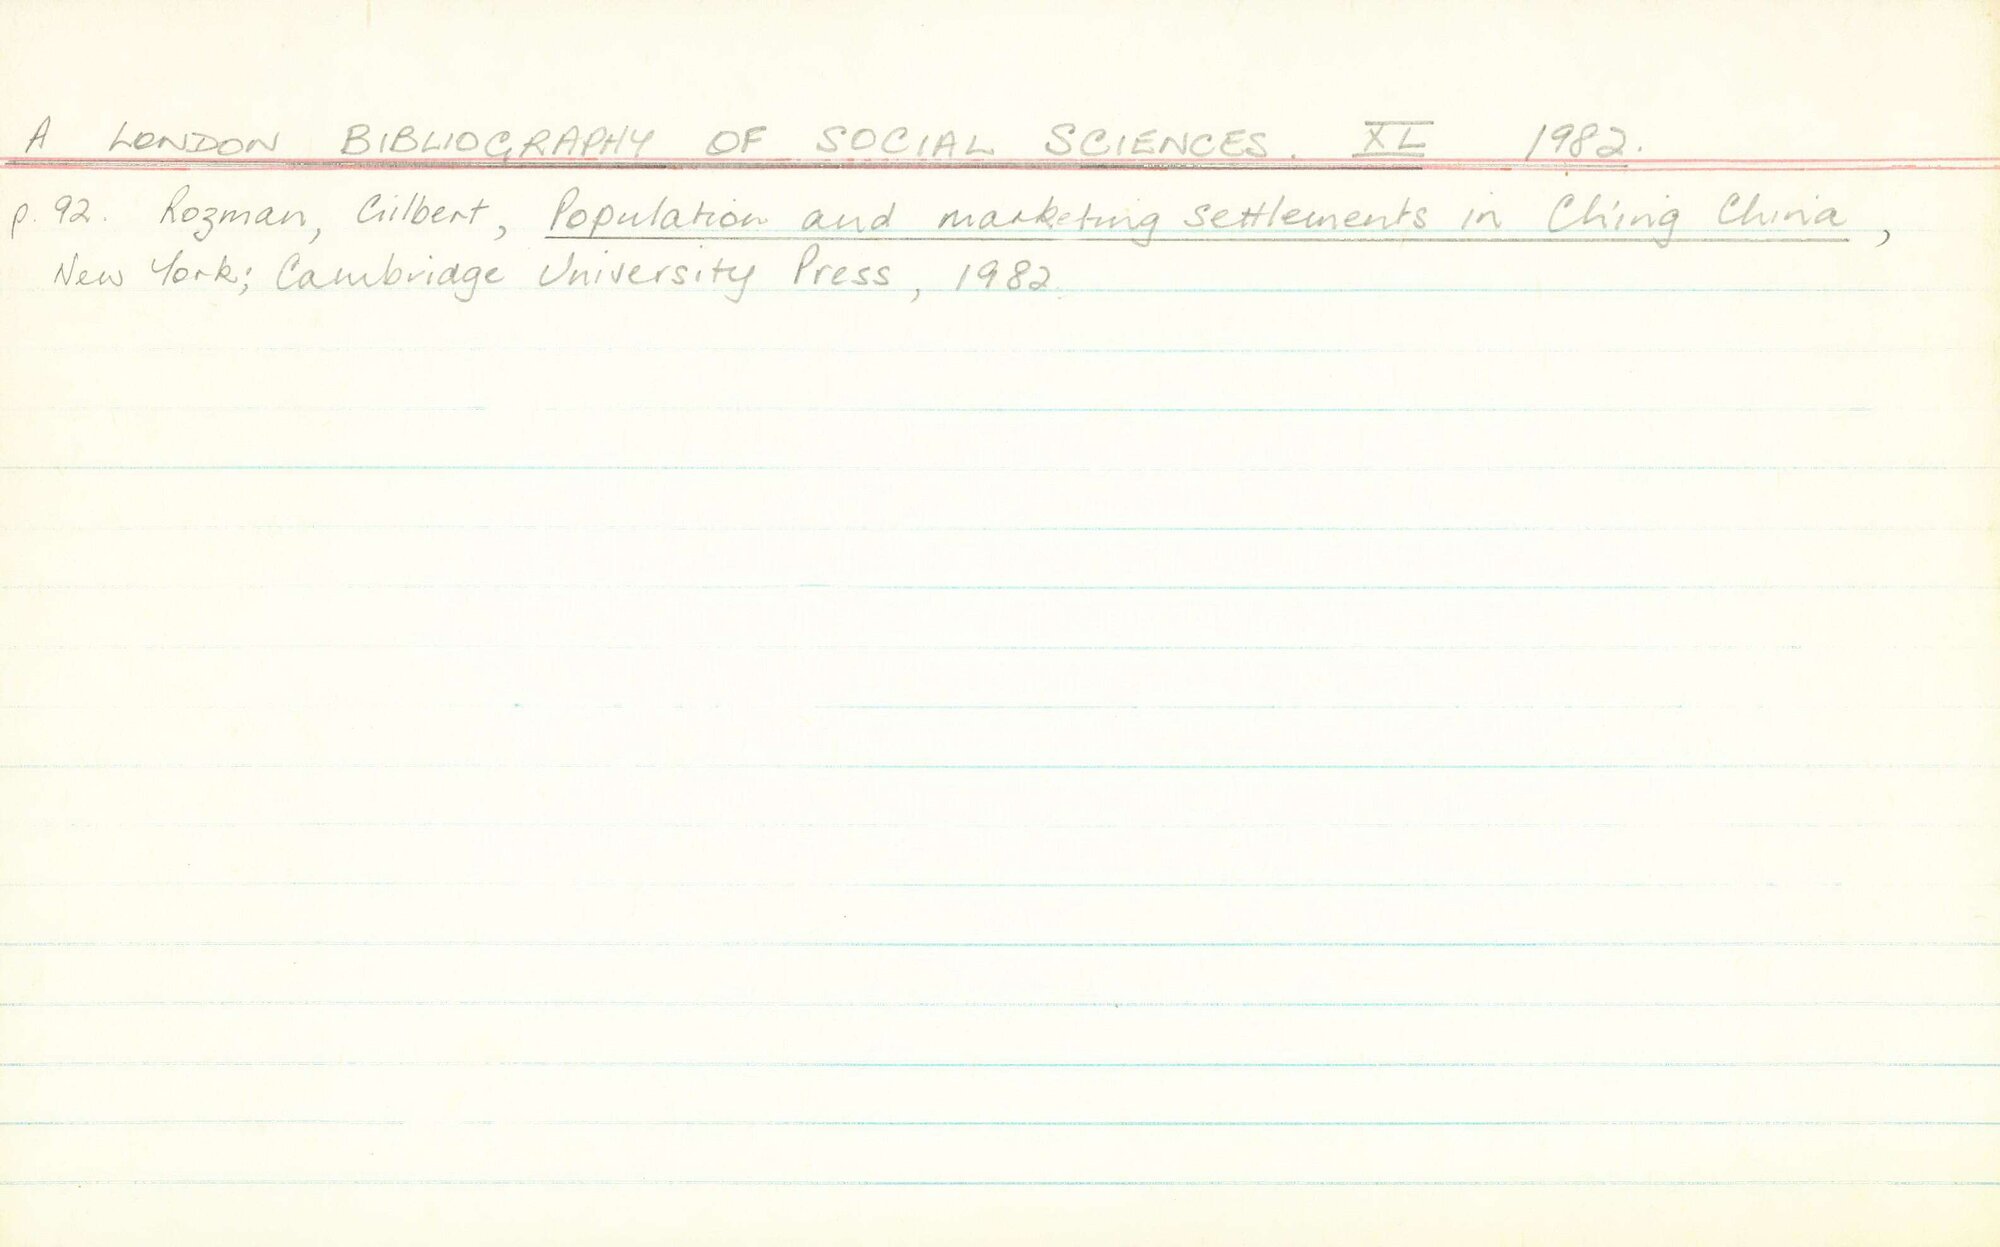 A LONDON BIBLIOGRAPHY OF SOCIAL SCIENCES. XL 1982.
p. 92. Rozman, Gilbert, Population and marketing settlements in Ch'ing China,
New York; Cambridge University Press, 1982.